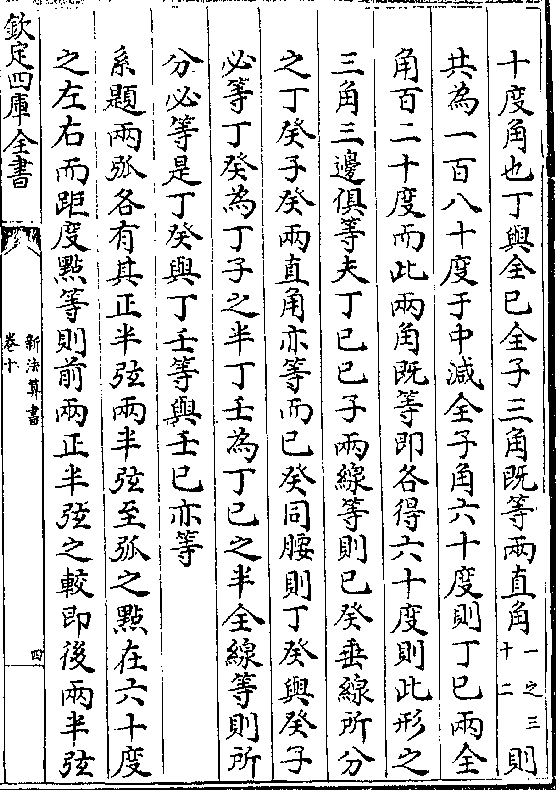 十度角也丁與全己全子三角既等兩直角一之三十二則
共為一百八十度于中減全子角六十度則丁己兩全
角百二十度而此兩角既等即各得六十度則此形之
三角三邊俱等夫丁己己子兩線等則己癸垂線所分
之丁癸子癸兩直角亦等而己癸同腰則丁癸與癸子
必等丁癸為丁子之半丁壬為丁己之半全線等則所
分必等是丁癸與丁壬等與壬己亦等
系題兩弧各有其正半弦兩半弦至弧之點在六十度
之左右而距度點等則前兩正半弦之較即後兩半弦
欽定四庫全書
新法算書
卷十
四